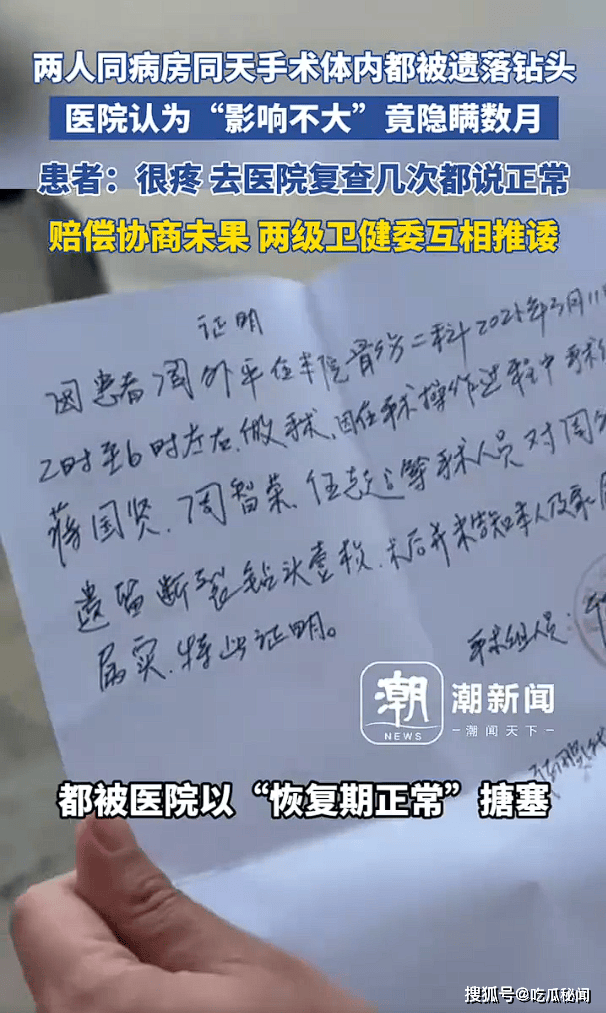 两人同病房同天手术体内都被遗落钻头
医院认为“影响不大”竟隐瞒数月
患者：很疼 去医院复查几次都说正常
赔偿协商未果 两级卫健委互相推诿
证明
因患者周外平在半院骨伤二科2025年3月11
2时至6时左右,做手术,因在手术操作过程中手术
蒋国贤、周智荣、任志远等手术人员对周
遗留断裂钻头壹枚,术后并未告知本人及家
属实,特此证明。
手术组人员：
潮 潮新闻
NEWS —潮闻天下—
都被医院以“恢复期正常”搪塞
搜狐号@吃瓜秘闻